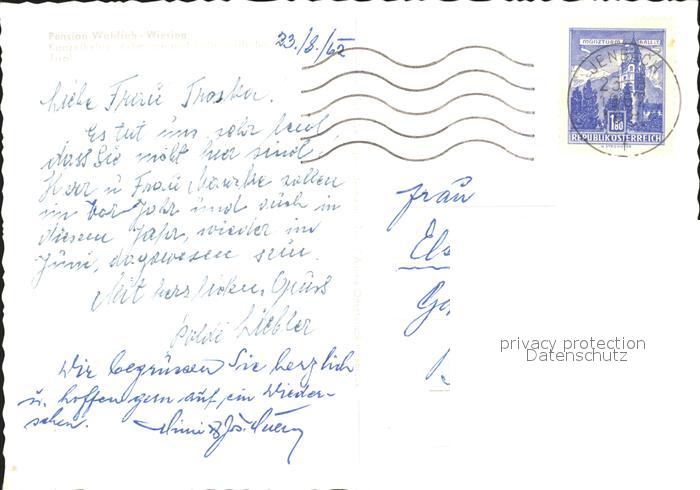 Pension Waldfink - Wiesing
Tirol
23./8./62
Liebe Frau Troska.
Es tut uns sehr leid,
dass Sie nicht hier sind.
Herr u Frau sollen
im Vor Jahr und auch in
diesem Jahr, wieder im
Juni, dagewesen sein.
Mit herzlichen, Gruss
Poldi Liebler
Wir begrüssen Sie herzlich
u. hoffen gern auf ein Wieder-
sehen.
MÜNZTURM HALL I.T.
JENBACH
1.80
REPUBLIK ÖSTERREICH
Frau
privacy protection
Datenschutz